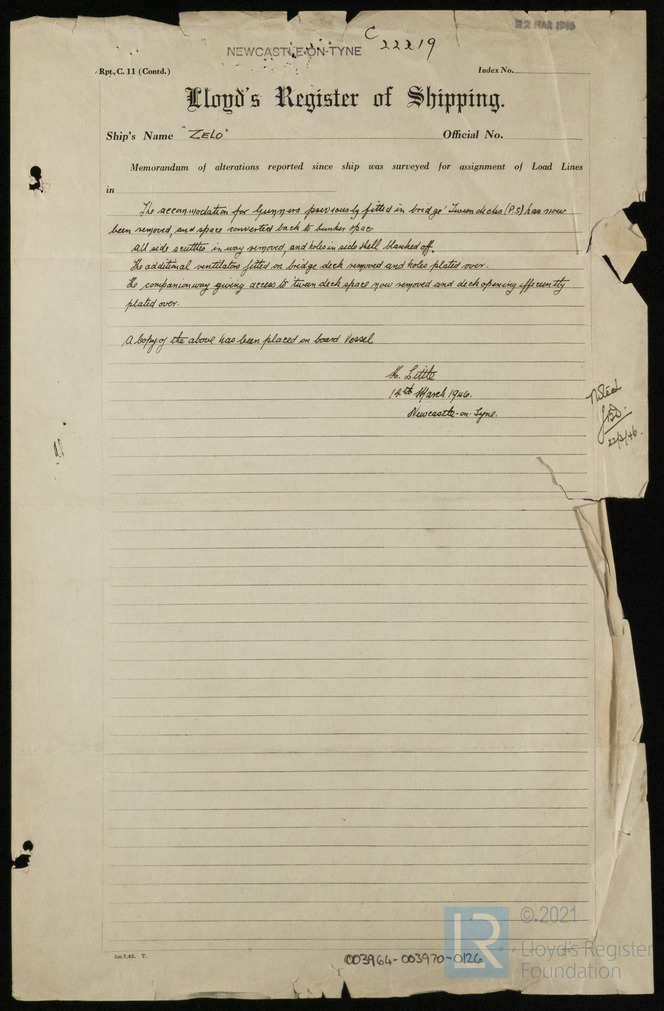 22 MAR 1946
NEWCASTLE-ON-TYNE C 22219
Rpt. C. 11 (Contd.) Index No.
Lloyd's Register of Shipping.
Ship's Name "ZELO" Official No.
Memorandum of alterations reported since ship was surveyed for assignment of Load Lines
in
The accommodation for Gunners previously fitted in bridge 'Tween decks (P.S) has now
been removed, and space converted back to bunker space
All side scuttles in way removed, and holes in side shell blanked off.
The additional ventilators fitted on bridge deck removed and holes plated over.
The companionway giving access to 'tween deck space now removed and deck opening efficiently
plated over.
A Copy of the above has been placed on board Vessel
Little
14th March 1946.
Newcastle-on-Tyne.
Noted
22/3/46.
T.
003964-003970-0126
LR
©2021
Lloyd's Register
Foundation